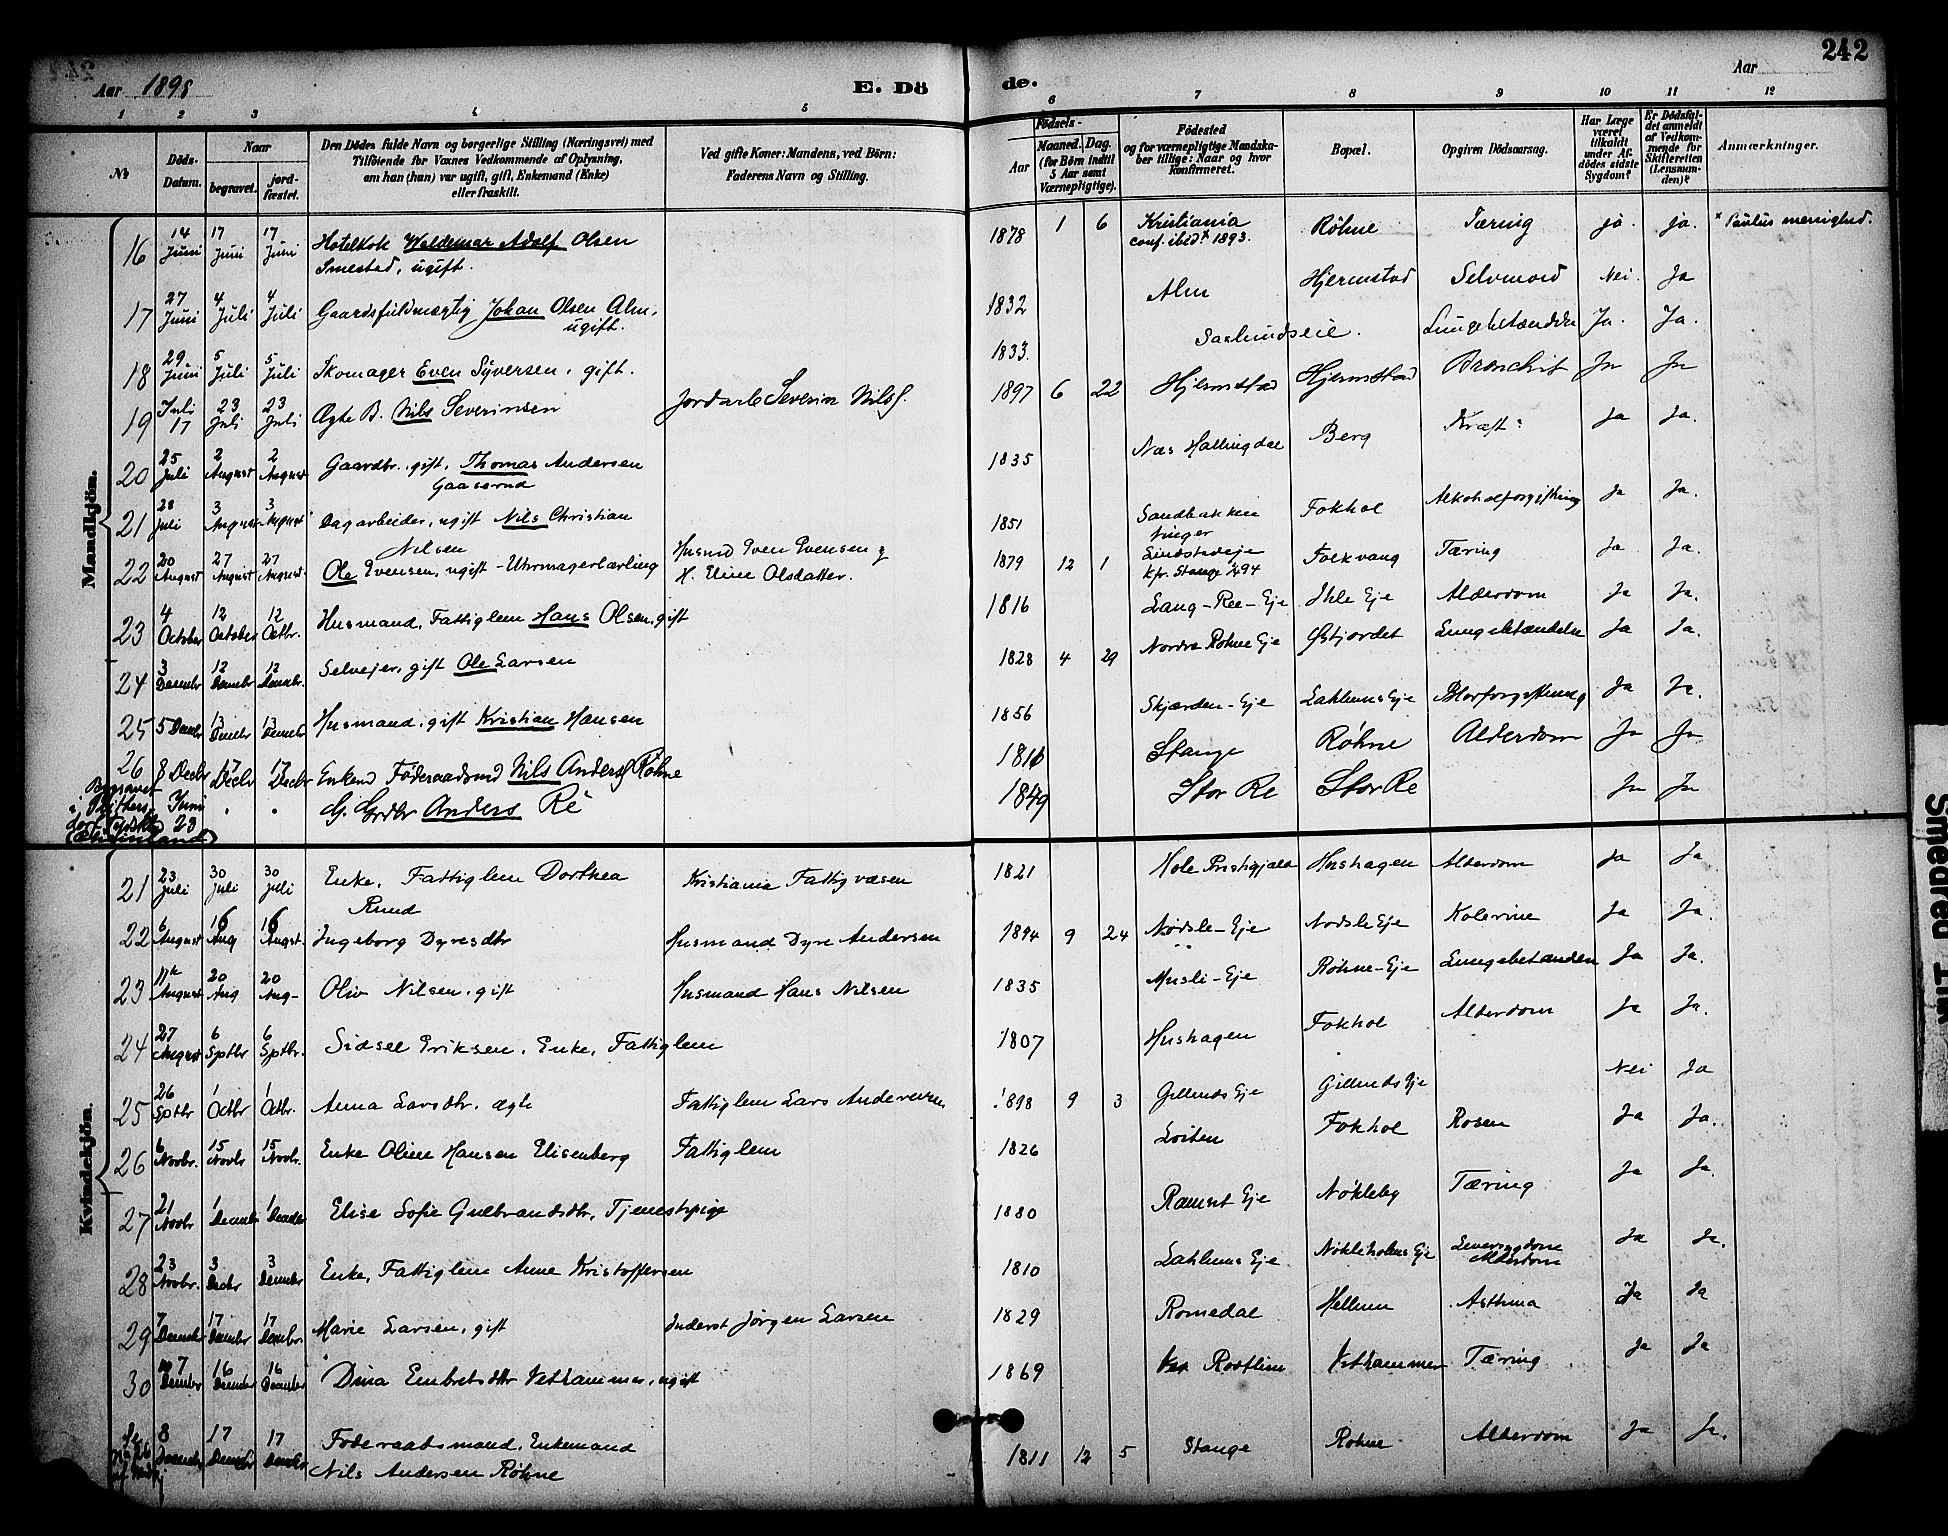 242
Aar 1898
E. Döde.
Aar
1 2 3 4 5 6 7 8 9 10 11 12
No
Döds-Datum.
Naar
begravet. jordfæstet.
Den Dödes fulde Navn og borgerlige Stilling (Næringsvei) med
Tilföiende for Voxnes Vedkommende af Oplysning,
om han (hun) var ugift, gift, Enkemand (Enke)
eller fraskilt.
Ved gifte Koner: Mandens, ved Börn:
Faderens Navn og Stilling.
Födsels-
Aar
Maaned. Dag.
(for Börn indtil
5 Aar samt
Værnepligtige).
Födested
og for værnepligtige Mandska-
ber tillige: Naar og hvor
konfirmeret.
Bopæl.
Opgiven Dödsaarsag.
Har Læge
været
tilkaldt
under Af-
dödes sidste
Sygdom?
Er Dödsfal-
det anmeldt
af Vedkom-
mende for
Skifteretten
(Lensman-
den)?
Anmærkninger.
Mandkjön.
16 14 Juni 17 Juni 17 Juni Hotelkok Waldemar Adolf Olsen Smestad, ugift. 1878 1 6 Kristiania conf. ibid x 1893. Röhne Tæring ja. ja. x Paulus menighed.
17 27 Juni 4 Juli 4 Juli Gaardsfuldmægtig Johan Olsen Alm, ugift. 1832 Alm Hjermstad Selvmord Nei. Ja
18 29 Juni 5 Juli 5 Juli Skomager Even Syversen, gift. 1833. Saxlundseie. Lungebetændelse Ja. Ja.
19 Juli 17 23 Juli 23 Juli Ægte B. Nils Severinsen Jordarb Severin Nilss. 1897 6 22 Hjermstad Hjermstad Bronchit Ja Ja
20 25 Juli 2 August 2 August Gaardbr. gift, Thomas Andersen Gaaserud 1835 Næs Hallingdal Berg Kræft Ja Ja.
21 28 Juli 3 August 3 August Dagarbeider, ugift Nils Christian Nilsen 1851 Sandbakken Fokhol Alkoholforgiftning Ja Ja.
22 20 August 27 August 27 August Ole Evensen, ugift - Uhrmagerlærling Husmd Even Evensen & H. Eline Olsdatter. 1879 12 1 Lindstedeje kfr. Stange 1894 Folkvang Tæring Ja Ja.
23 4 October 12 October 12 Octbr. Husmand, Fattiglem Hans Olsen, gift 1816 Lang-Ree-Eje Ihle Eje Alderdom Ja Ja.
24 3 Desembr 12 Decembr 12 Decembr. Selvejer, gift Ole Larsen 1828 4 29 Nordre Röhne Eje Østjordet Lungebetændelse Ja Ja.
25 5 Decembr 13 Decembr 13 Decembr Husmand, gift Kristian Hansen 1856 Skjærden-Eje Laklums Eje Blodforgiftning Ja Ja.
26 8 Decbr 17 Decbr 17 Decbr Enkemd Föderaadsmd Nils Anders. Röhne 1811 Stange Röhne Alderdom Ja Ja
Begravet i Juni 23 " " G. Grdbr Anders Re 1849 Stor Re Stor Re Ja Ja
Kvindekjön.
21 23 Juli 30 Juli 30 Juli Enke, Fattiglem Dorthea Ruud Kristiania Fattigvæsen 1821 Hole Prestegjæld Hushagen Alderdom Ja Ja
22 6 August 16 Aug 16 Augst. Ingeborg Dyresdtr Husmand Dyre Andersen 1894 9 24 Nordsle-Eje Nordsle Eje Kolerine Ja Ja.
23 11te August 20 Aug 20 Aug- Oliv Nilsen, gift Husmand Hans Nilsen 1835 Musli-Eje Röhne-Eje Lungebetænden Ja Ja.
24 27 August 6 Sptbr 6 Sptbr. Sidsel Eriksen, Enke, Fattiglem 1807 Hushagen Fokhol Alderdom Ja Ja.
25 26 Sptbr 1 Octbr 1 Octbr. Anna Larsdtr. ægte Fattiglem Lars Andersen 1898 9 3 Gillunds Eje Gillunds Eje Nei Ja
26 6 Novbr. 15 Novbr 15 Novbr. Enke Oline Hansen Elisenberg Fattiglem 1826 Loiten Fokhol Rosen Ja Ja.
27 21 Novbr 1 Decembr 1 Decembr Elise Sofie Gulbrandsdtr, Tjenestepige 1880 Ramset Eje Nökleby Tæring Ja Ja.
28 23 Novbr. 3 Decbr 3 Decembr Enke, Fattiglem Anne Kristoffersen 1810 Laklums Eje Nökleholms Eje Leversygdom Alderdom Ja Ja.
29 7 Decembr 17 Decembr 17 Decembr. Marie Larsen, gift Inderst Jörgen Larsen 1829 Romedal Hellum Asthma Ja Ja
30 7 Decembr 16 Decembr 16 Decembr Dina Embretsdtr Vethammer, ugift 1869 Rostlien Vethammer Tæring Ja Ja
Se No 26 af Mandkj 8 Decembr 17 Decembr 17 Decembr Föderaadsmand, Enkemand Nils Andersen Röhne 1811 12 5 Stange Röhne Alderdom Ja Ja.